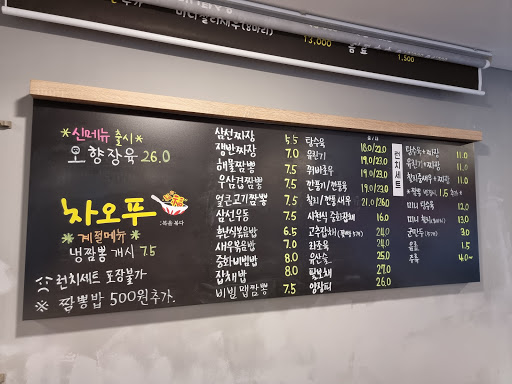 미니칠리새우(8마리) 13,000 음료 1,500
*신메뉴 출시*
오향장육 26.0
차오푸
:볶음 볶다
*계절메뉴*
냉짬뽕 개시 7.5
런치세트 포장불가
※ 짬뽕밥 500원추가.
삼선짜장 5.5
쟁반짜장 7.0
해물짬뽕 7.5
우삼겹짬뽕 7.5
얼큰고기짬뽕 7.5
삼선우동 7.5
해선볶음밥 6.5
새우볶음밥 7.0
중화비빔밥 8.0
잡채밥 8.0
비빔짬뽕 7.5
소/대
탕수육 18.0/23.0
유린기 19.0/23.0
쥐바로우 19.0/23.0
깐풍기/깐풍육 19.0/23.0
칠리/깐쇼새우 21.0/26.0
사천식 중화잡채 16.0
고추잡채 24.0
라조육 24.0
유산슬 25.0
팔보채 27.0
양장피 26.0
런치세트
탕수육+짜장 11.0
유린기+짜장 11.0
칠리중새우+짜장 11.0
1.5 추가
미니 탕수육 12.0
미니 13.0
군만두 3.0
음료 1.5
주류 4.0~